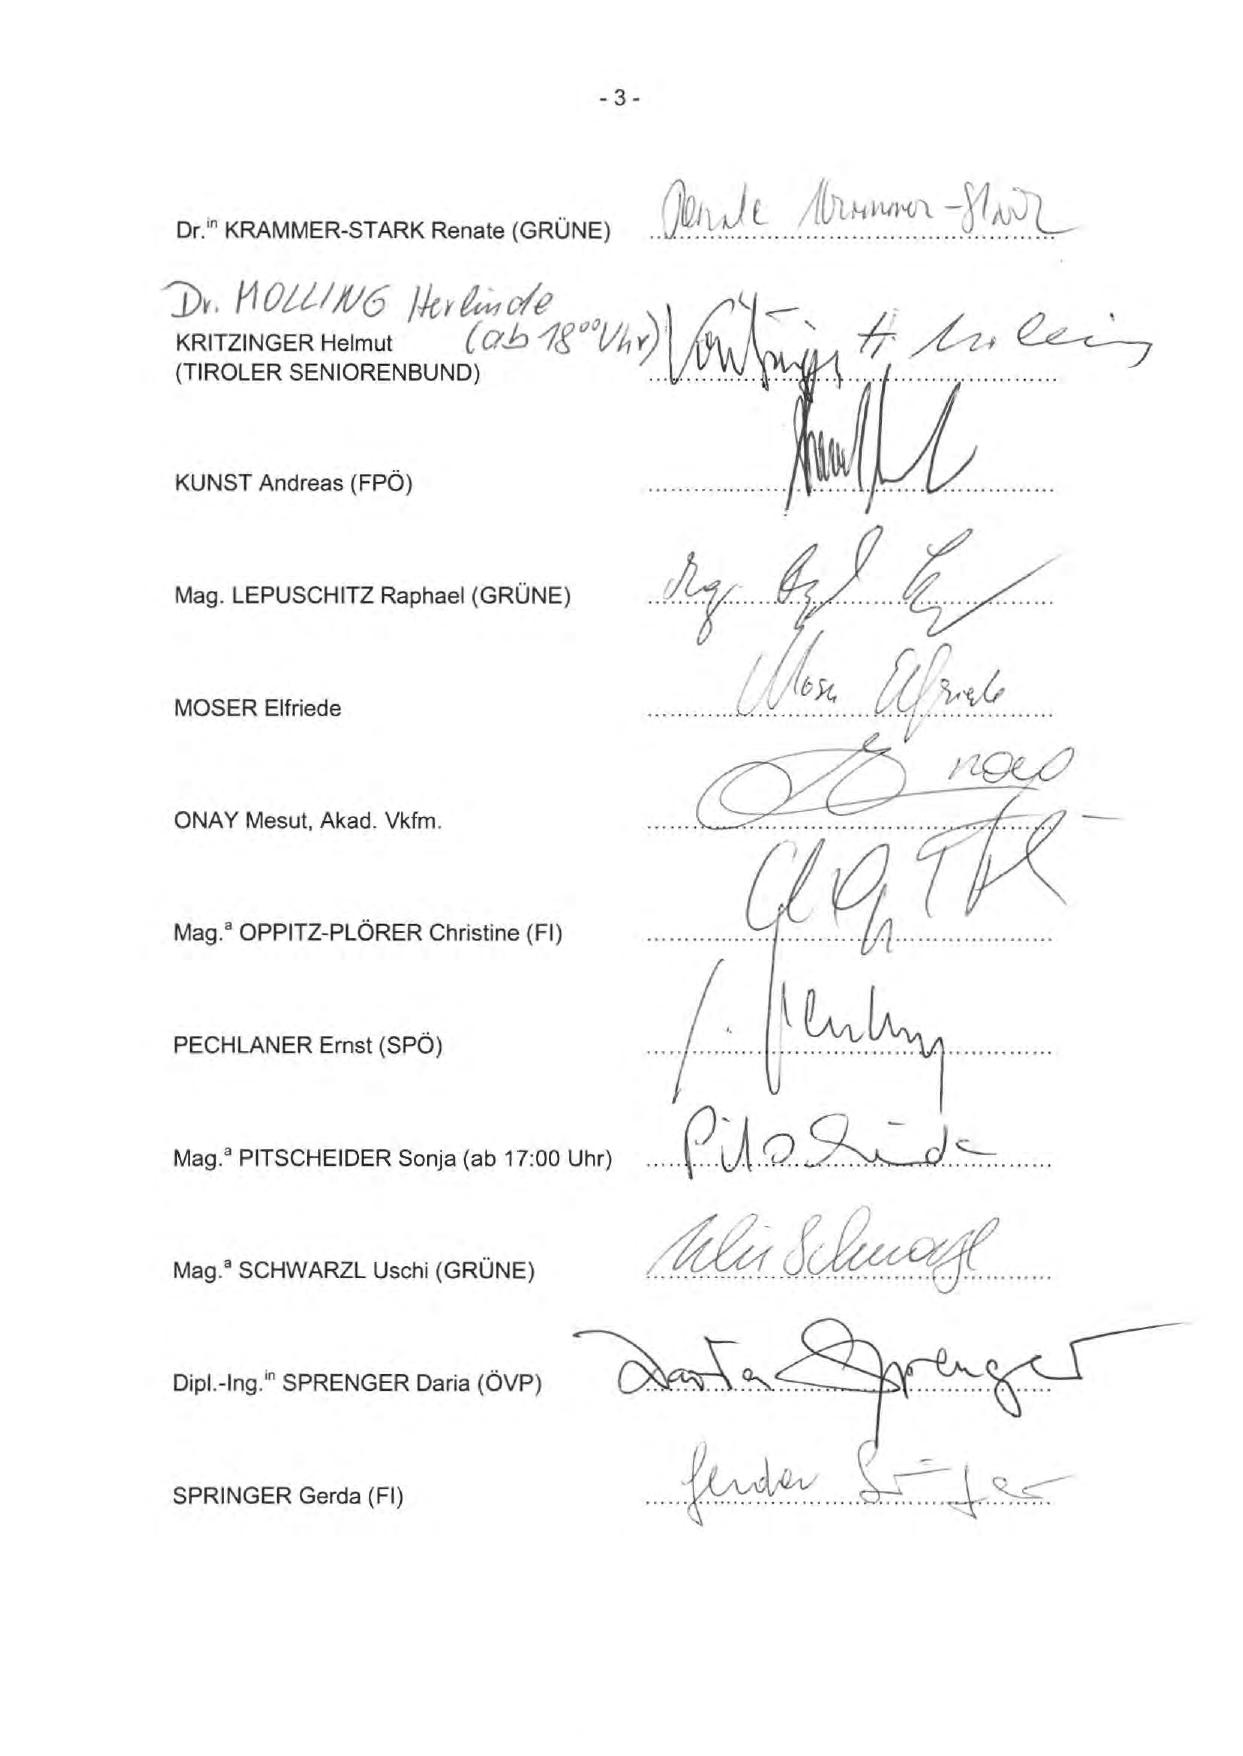 - 3 -
Dr.in KRAMMER-STARK Renate (GRÜNE) Renate Krammer-Stark
Dr. MOLLING Herlinde
KRITZINGER Helmut (ab 18⁰⁰ Uhr)
(TIROLER SENIORENBUND)
KUNST Andreas (FPÖ)
Mag. LEPUSCHITZ Raphael (GRÜNE) Mag.
MOSER Elfriede Moser Elfriede
ONAY Mesut, Akad. Vkfm.
Mag.a OPPITZ-PLÖRER Christine (FI)
PECHLANER Ernst (SPÖ)
Mag.a PITSCHEIDER Sonja (ab 17:00 Uhr) Pitscheider
Mag.a SCHWARZL Uschi (GRÜNE) Uschi Schwarzl
Dipl.-Ing.in SPRENGER Daria (ÖVP) Daria Sprenger
SPRINGER Gerda (FI) Gerda Springer